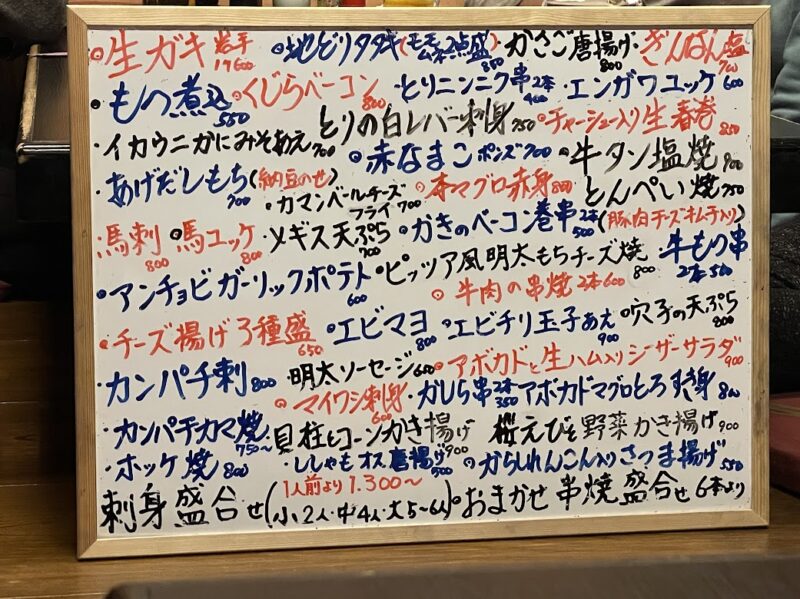 生ガキ 岩手 1ケ600 地どりタタキ(モモムネ2点盛) 850 かさご唐揚げ 800 ぎんなん塩 700
もつ煮込 550 くじらベーコン 800 とりニンニク串 2本 460 エンガワユッケ 600
イカウニかにみそあえ 700 とりの白レバー刺身 750 チャーシュー入り生春巻 850
あげだしもち(納豆のせ) 700 赤なまこポンズ 700 牛タン塩焼 900
カマンベールチーズフライ 700 本マグロ赤身 800 とんぺい焼 750
馬刺 800 馬ユッケ 800 メギス天ぷら 700 かきのベーコン巻串 2本 500 (豚肉チーズキムチ入り)
アンチョビガーリックポテト 600 ピッツア風明太もちチーズ焼 800 牛もつ串 2本 560
牛肉の串焼 2本 600
チーズ揚げ3種盛 650 エビマヨ 800 エビチリ玉子あえ 900 穴子の天ぷら 800
カンパチ刺 800 明太ソーセージ 600 アボカドと生ハム入りシーザーサラダ 900
マイワシ刺身 600 がしら串 2本 350 アボカドマグロとろすき身 800
カンパチカマ焼 750〜 貝柱とコーンかき揚げ 900 桜えびと野菜かき揚げ 900
ホッケ焼 800 ししゃもオス唐揚げ 500 からしれんこん入りさつま揚げ 550
刺身盛合せ 1人前より1.300〜 (小、2人・中4人・大5〜6人) おまかせ串焼盛合せ 6本より